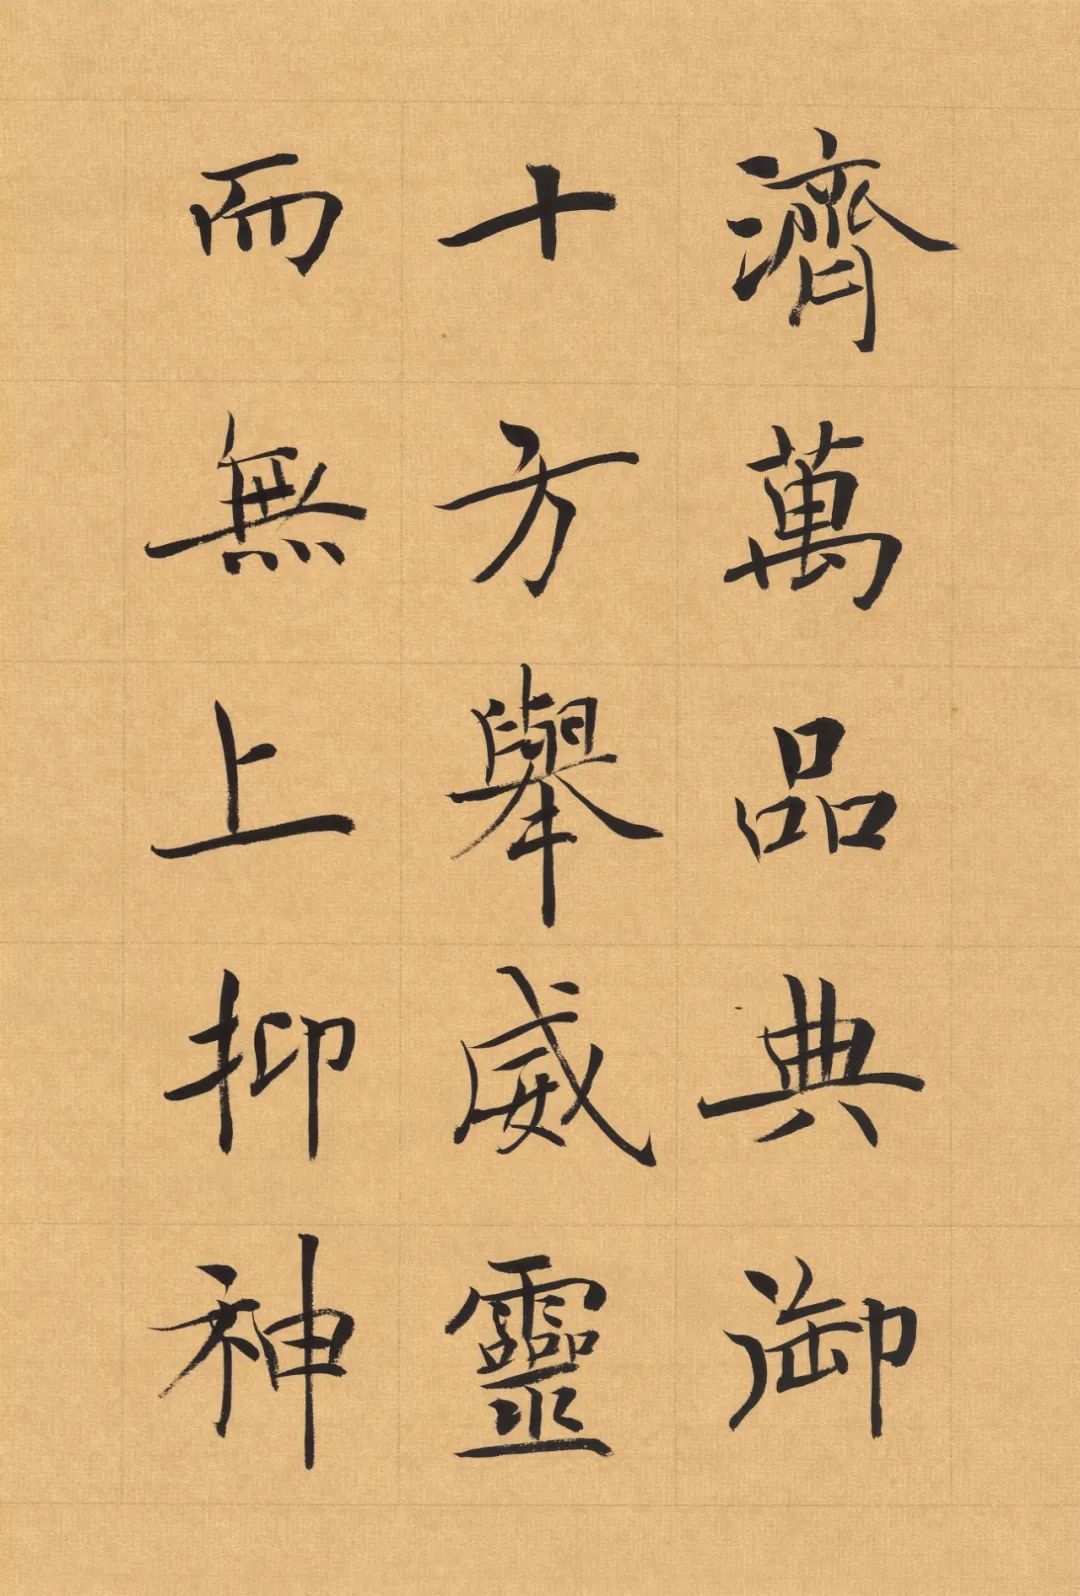 濟萬品典御
十方舉威靈
而無上抑神